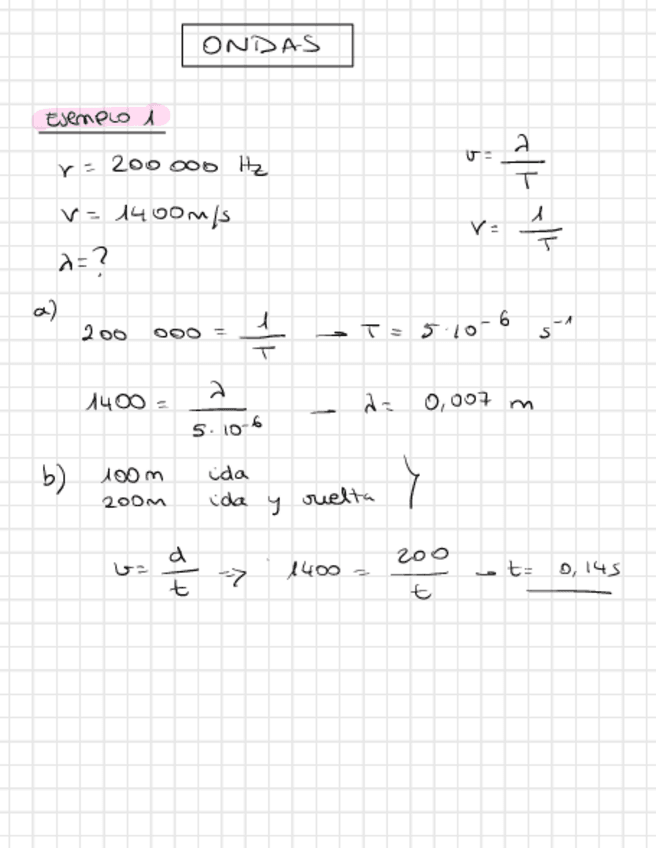 ONDAS
Ejemplo 1
ν = 200 000 Hz
v = λ/T
v = 1400 m/s
ν = 1/T
λ = ?
a)
200 000 = 1/T → T = 5·10⁻⁶ s⁻¹
1400 = λ/5·10⁻⁶ – λ = 0,007 m
b) 100m ida
200m ida y vuelta }
v = d/t => 1400 = 200/t → t = 0,14s